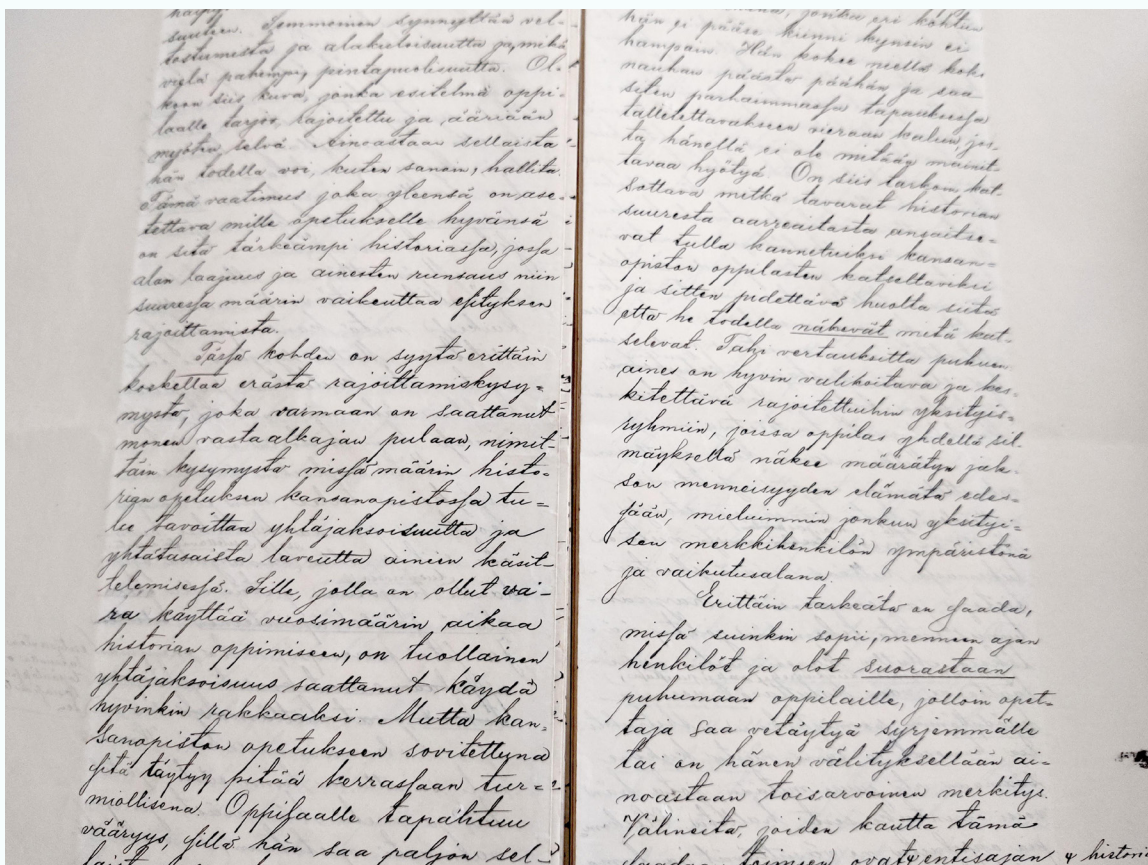 suuteen. Semmoinen synnyttää vel-
tostumista ja alakuloisuutta ja, mikä
vielä pahempi, pintapuolisuutta. Ol-
koon siis kuva, jonka esitelmä oppi-
laalle tarjoo, rajoitettu ja ääriään
myöten selvä. Ainoastaan sellaista
hän todella voi, kuten sanon, hallita.
Tämä vaatimus joka yleensä on ase-
tettava mille opetukselle hyvänsä
on sitä tärkeämpi historiassa, jossa
alan laajuus ja ainesten runsaus niin
suuressa määrin vaikeuttaa esityksen
rajoittamista.
Tässä kohden on syytä erittäin
koskettaa erästä rajoittamiskysy-
mystä, joka varmaan on saattanut
monen vasta alkajan pulaan, nimit-
täin kysymystä missä määrin histo-
rian opetuksen kansanopistossa tu-
lee tavoittaa yhtäjaksoisuutta ja
yhtätasaista laveutta aineen käsit-
telemisessä. Sille, jolla on ollut va-
ra käyttää vuosimäärin aikaa
historian oppimiseen, on tuollainen
yhtäjaksoisuus saattanut käydä
hyvinkin rakkaaksi. Mutta kan-
sanopiston opetukseen sovitettuna
sitä täytyy pitää kerrassaan tur-
miollisena. Oppilaalle tapahtuu
vääryys, sillä hän saa paljon sel-
jonka eri kohtiin
hän ei pääse kiinni kynsin ei
hampain. Hän kokee niellä koko
nauhan päästä päähän ja saa
siten parhaimmassa tapauksessa
talletettavakseen vieraan kalun, jos-
ta hänellä ei ole mitään mainit-
tavaa hyötyä. On siis tarkoin kat-
sottava mitkä tavarat historian
suuresta aarreaitasta ansaitse-
vat tulla kannetuiksi kansan-
opiston oppilasten katseltaviksi
ja sitten pidettävä huolta siitä
että he todella näkevät mitä kat-
selevat. Tahi vertauksitta puhuen
aines on hyvin valikoitava ja kes-
kitettävä rajoitettuihin yksityis-
ryhmiin, joissa oppilas yhdellä sil-
mäyksellä näkee määrätyn jak-
son menneisyyden elämätä edes-
sään, mieluimmin jonkun yksityi-
sen merkkihenkilön ympäristönä
ja vaikutusalana.
Erittäin tärkeätä on saada,
missä suinkin sopii, menneen ajan
henkilöt ja olot suorastaan
puhumaan oppilaille, jolloin opet-
taja saa vetäytyä syrjemmälle
tai on hänen välityksellään ai-
noastaan toisarvoinen merkitys.
Välineitä, joiden kautta tämä
toimeen ovat entisajan x histori